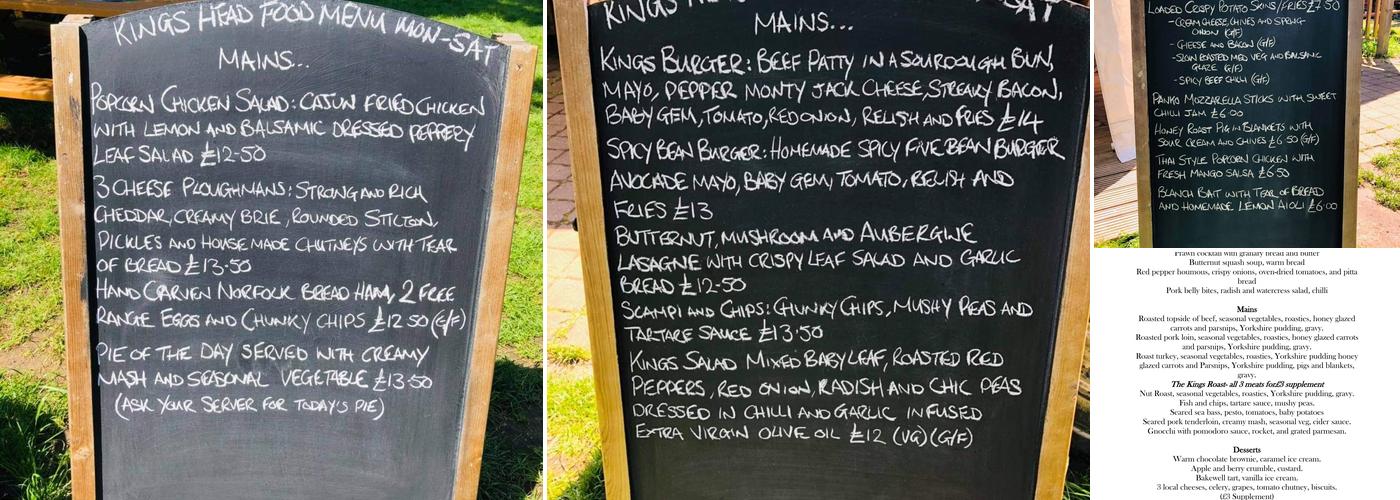 KINGS HEAD FOOD MENU MON-SAT
MAINS...
POPCORN CHICKEN SALAD: CAJUN FRIED CHICKEN
WITH LEMON AND BALSAMIC DRESSED PEPPERY
LEAF SALAD £12-50
3 CHEESE PLOUGHMANS: STRONG AND RICH
CHEDDAR, CREAMY BRIE, ROUNDED STILTON,
PICKLES AND HOUSE MADE CHUTNEYS WITH TEAR
OF BREAD £13-50
HAND CARVEN NORFOLK BREAD HAM, 2 FREE
RANGE EGGS AND CHUNKY CHIPS £12 50 (G/F)
PIE OF THE DAY SERVED WITH CREAMY
MASH AND SEASONAL VEGETABLE £13-50
(ASK YOUR SERVER FOR TODAY'S PIE)
KINGS
SAT
MAINS...
KINGS BURGER: BEEF PATTY IN A SOURDOUGH BUN,
MAYO, PEPPER MONTY JACK CHEESE, STREAKY BACON,
BABY GEM, TOMATO, RED ONION, RELISH AND FRIES £14
SPICY BEAN BURGER: HOMEMADE SPICY FIVE BEAN BURGER
AVOCADE MAYO, BABY GEM, TOMATO, RELISH AND
FRIES £13
BUTTERNUT, MUSHROOM AND AUBERGINE
LASAGNE WITH CRISPY LEAF SALAD AND GARLIC
BREAD £12-50
SCAMPI AND CHIPS: CHUNKY CHIPS, MUSHY PEAS AND
TARTARE SAUCE £13-50
KINGS SALAD MIXED BABY LEAF, ROASTED RED
PEPPERS, RED ONION, RADISH AND CHIC PEAS
DRESSED IN CHILLI AND GARLIC INFUSED
EXTRA VIRGIN OLIVE OIL £12 (VG) (G/F)
LOADED CRISPY POTATO SKINS/FRIES £7 50
- CREAM CHEESE, CHIVES AND SPRING
ONION (G/F)
- CHEESE AND BACON (G/F)
- SLOW ROASTED MED VEG AND BALSAMIC
GLAZE (G/F)
- SPICY BEEF CHILLI (G/F)
PANKO MOZZARELLA STICKS WITH SWEET
CHILLI JAM £6 00
HONEY ROAST PIG IN BLANKETS WITH
SOUR CREAM AND CHIVES £6 50 (G/F)
THAI STYLE POPCORN CHICKEN WITH
FRESH MANGO SALSA £6 50
BLANCH BAIT WITH TEAR OF BREAD
AND HOMEMADE LEMON AIOLI £6-00
Prawn cocktail with granary bread and butter
Butternut squash soup, warm bread
Red pepper houmous, crispy onions, oven-dried tomatoes, and pitta
bread
Pork belly bites, radish and watercress salad, chilli
Mains
Roasted topside of beef, seasonal vegetables, roasties, honey glazed
carrots and parsnips, Yorkshire pudding, gravy.
Roasted pork loin, seasonal vegetables, roasties, honey glazed carrots
and parsnips, Yorkshire pudding, gravy.
Roast turkey, seasonal vegetables, roasties, Yorkshire pudding honey
glazed carrots and Parsnips, Yorkshire pudding, pigs and blankets,
gravy.
The Kings Roast- all 3 meats for£3 supplement
Nut Roast, seasonal vegetables, roasties, Yorkshire pudding, gravy.
Fish and chips, tartare sauce, mushy peas.
Seared sea bass, pesto, tomatoes, baby potatoes
Seared pork tenderloin, creamy mash, seasonal veg, cider sauce.
Gnocchi with pomodoro sauce, rocket, and grated parmesan.
Desserts
Warm chocolate brownie, caramel ice cream.
Apple and berry crumble, custard.
Bakewell tart, vanilla ice cream.
3 local cheeses, celery, grapes, tomato chutney, biscuits.
(£3 Supplement)